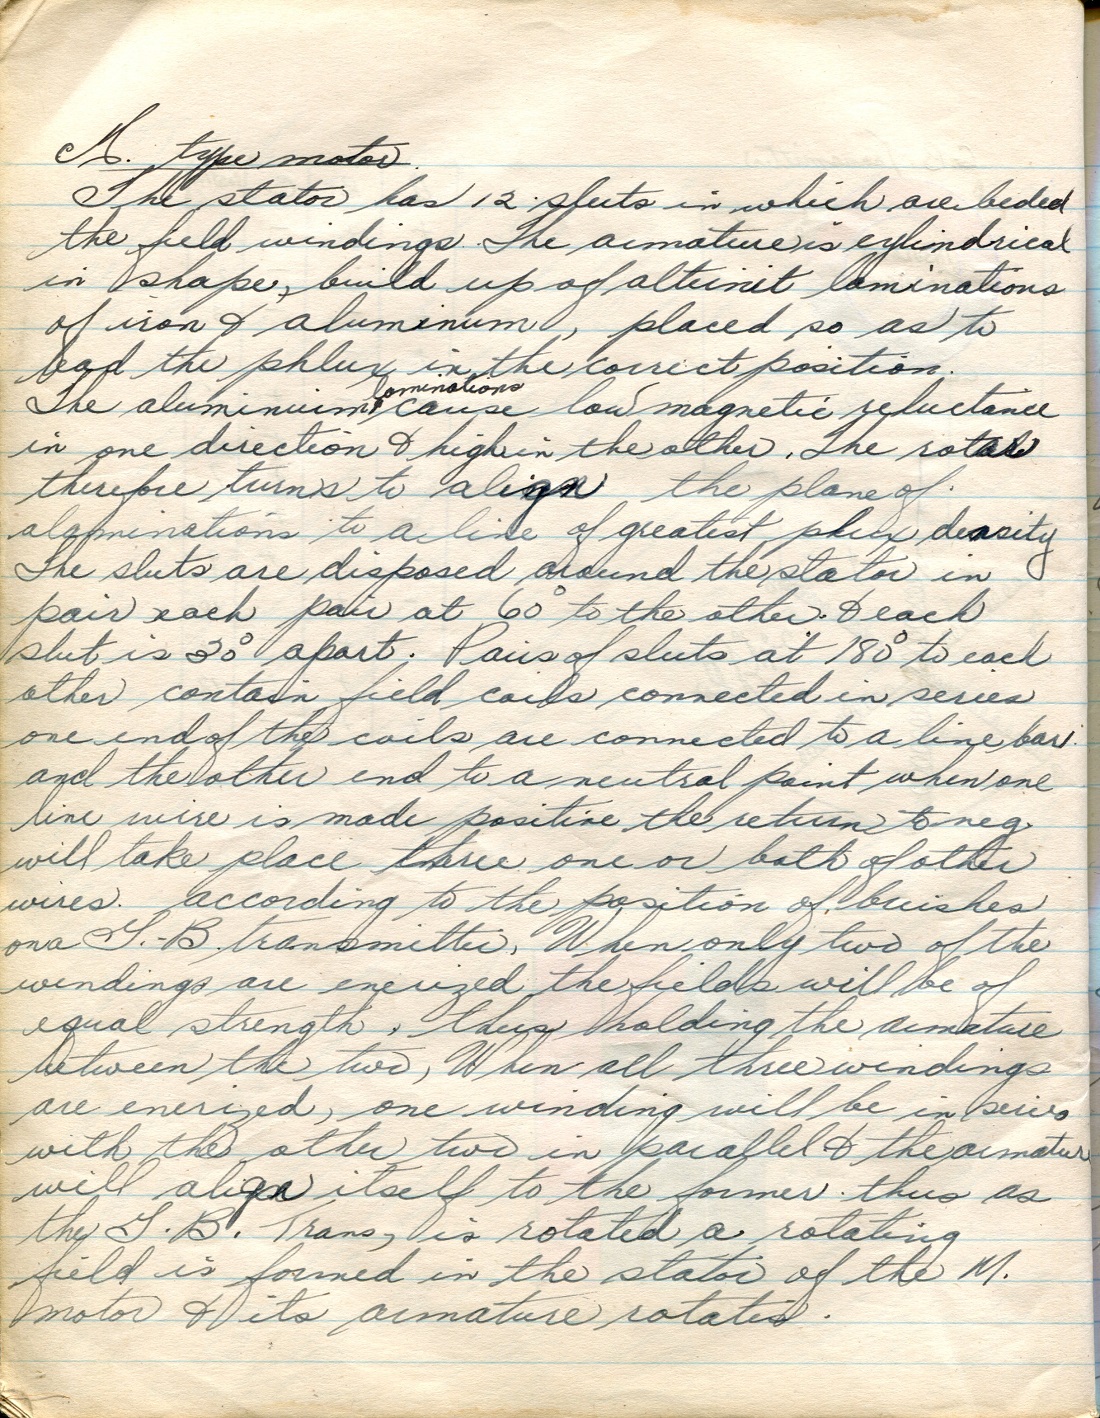 M. type motor.
The stator has 12 sluts in which are beded
the field windings. The armature is cylindrical
in shape, build up of alternit laminations
of iron & aluminum, placed so as to
lead the phlux in the correct position.
laminations
The aluminium, cause low magnetic reluctance
in one direction & high in the other. The rotar
therefore turns to align the plane of
alaminations to a line of greatest phlux density
The sluts are disposed around the stator in
pair each pair at 60° to the other. & each
slut is 30° apart. Pairs of sluts at 180° to each
other contain field coils connected in series
one end of the coils are connected to a line bar.
and the other end to a neutral point when one
line wire is made positive the return to neg
will take place three one or both of other
wires. according to the position of brishes
on a G.-B. transmitter, When only two of the
windings are enerized the fields will be of
equal strength, thus holding the armature
between the two, When all three windings
are enerized, one winding will be in series
with the other two in parallel & the armature
will align itself to the former. thus as
the G. B. Trans, is rotated a rotating
field is formed in the stator of the M.
motor & its armature rotates.